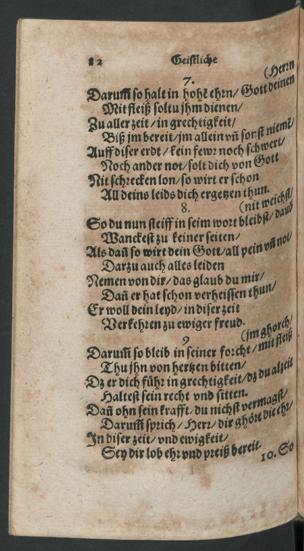 82 Geistliche
7. (Herrn
Darum̄ so halt in hohē ehrn/ Gott deinen
Mit fleiß soltu jhm dienen/
Zu aller zeit/ in grechtigkeit/
Biß jm bereit/ jm allein vn̄ sonst niemt/
Auff diser erdt/ kein fewr noch schwert/
Noch ander not/ solt dich von Gott
Nit schrecken lon/ so wirt er schon
All deins leids dich ergetzen thun.
8. (nit weichst/
So du nun steiff in seim wort bleibst/ dauō
Wanckest zu keiner seiten/
Als dan̄ so wirt dein Gott/ all pein vn̄ not/
Darzu auch alles leiden
Nemen von dir/ das glaub du mir/
Dan̄ er hat schon verheissen thun/
Er woll dein leyd/ in diser zeit
Verkehren zu ewiger freud.
9 (jm ghorch/
Darum̄ so bleib in seiner forcht/ mit fleiß
Thu jhn von hertzen bitten/
Dz er dich führ in grechtigkeit/ dz du alzeit
Haltest sein recht vnd sitten.
Dan̄ ohn sein krafft/ du nichst vermagst/
Darum̄ sprich/ Herr/ dir ghört die ehr/
In diser zeit/ vnd ewigkeit/
Sey dir lob ehr vnd preiß bereit.
10. So